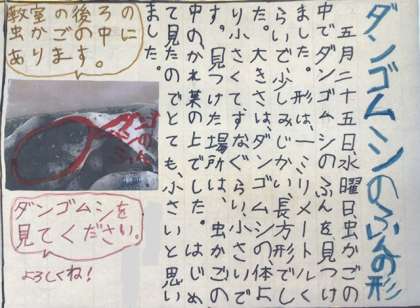 ダンゴムシのふんの形
五月二十五日、水曜日、虫かごの
中でダンゴムシのふんを見つけ
ました。形は、一ミリメートルく
らいで少しみじかい長方形でし
た。大きさは、ダンゴムシの体よ
り小さくて、すなぐらい小さいで
す。見つけた場所は、虫かごの
中のかれ葉の上でした。はじめ
て見たのでとても、小さいと思い
ました。
教室の後ろの
虫かごの中に
あります。
ダンゴムシ
のふん
ダンゴムシを
見てください。
よろしくね!